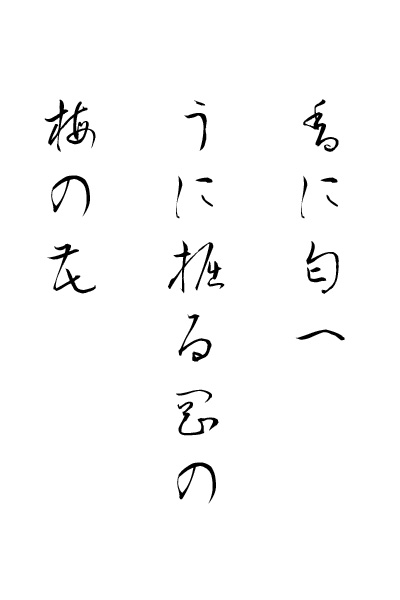 香に匂へ
うに掘る岡の
梅の花